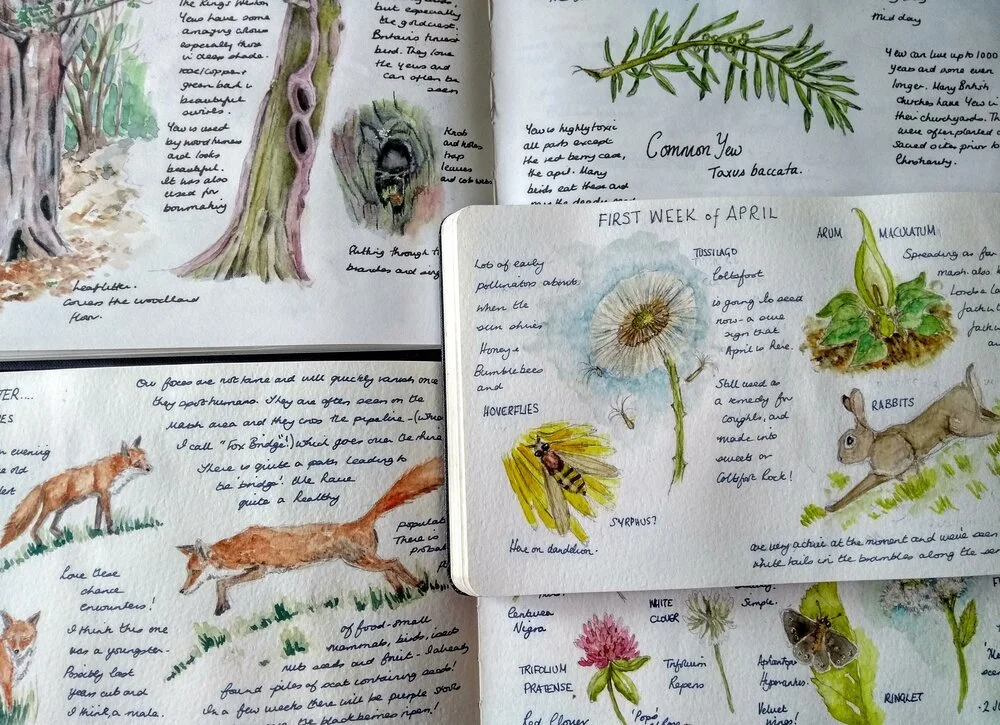 The Kings Weston
Yews have some
amazing colours
especially those
in deep shade.
rose/copper
green bark in
beautiful
swirls.
Yew is used
by wood turners
and looks
beautiful.
It was also
used for
bowmaking
Leaf litter.
Covers the woodland
floor.
but especially
the goldcrest,
Britain's tiniest
bird. They love
the yews and
can often be
seen
Knots
and holes
trap
leaves
and cobwebs
flitting through t
branches and sing
Mid day
Yew can live up to 1000
years and some even
longer. Many British
churches have Yew in
their churchyards. Th
were often planted
Sacred sites prior to
Christianity.
Yew is highly toxic
all parts except
the red berry case,
the aril. Many
birds eat these and
Common Yew
Taxus baccata.
FIRST WEEK of APRIL
Lots of early
pollinators about
when the
sun shines
Honey +
Bumblebees
and
HOVERFLIES
SYRPHUS?
Here on dandelion.
TUSSILAGO
Coltsfoot
is going to seed
now - a sure
sign that
April is here.
Still used as
a remedy for
coughs, and
made into
sweets or
Coltsfoot Rock!
ARUM MACULATUM
Spreading as far
mash. also
Lords + La
Jack in
RABBITS
are very active at the moment and we've seen
white tails in the brambles along the
TER....
ES
n evening
he old
Our foxes are not tame and will quickly vanish once
they spot humans. They are often seen on the
Marsh area and they cross the pipeline - (what
I call "Fox Bridge"!) which goes over the rhine
There is quite a path leading to
the 'bridge'! We have
quite a healthy
populat
There is
probab
of food - small
mammals, birds, insect
nuts seeds and fruit - I already
found piles of scat containing seeds!
In a few weeks there will be purple
the blackberries ripen!
Love these
chance
encounters!
I think this one
was a youngster.
Possibly last
years cub and
I think, a male.
Centurea
Nigra
TRIFOLIUM
PRATENSE
Red Clover
WHITE
CLOVER
Trifolium
Repens
'Popo'
Simple.
Aphantopus
Hyperantus.
Velvet
wings!
RINGLET